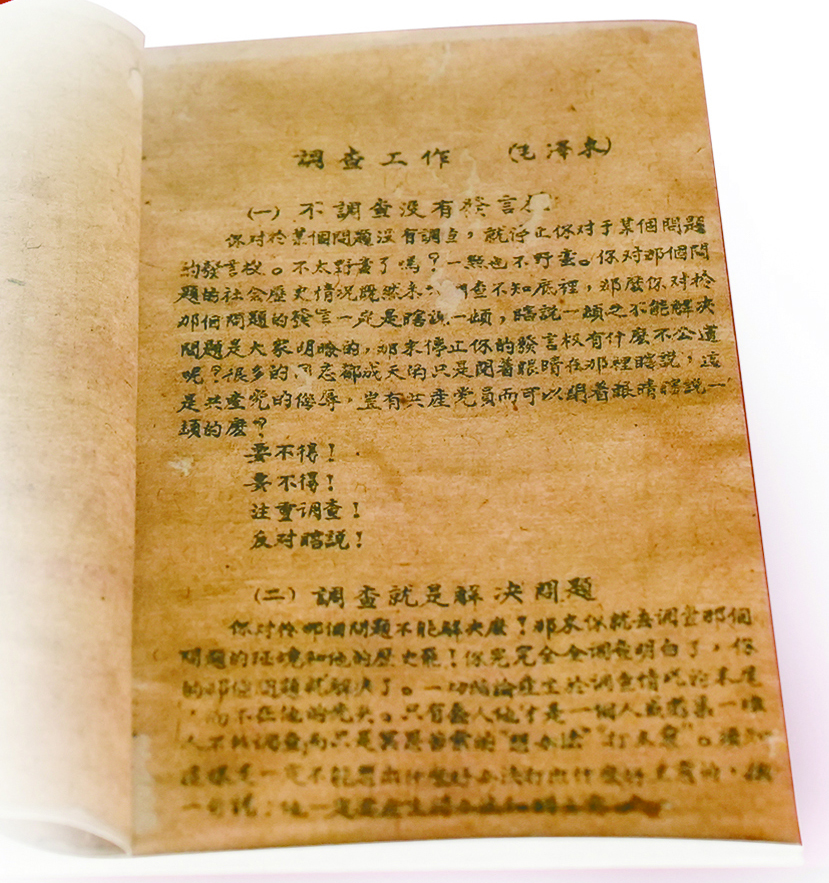 調查工作 (毛澤東)
(一) 不調查没有發言
你对於某個問題没有調查，就停止你对于某個問題
的發言权。不太野蛮了嗎？一點也不野蛮。你对那個問
題的社会歷史情況既然未 查不知底裡，那麼你对於
那個問題的發言一定是瞎說一頓，瞎說一頓之不能解决
問題是大家明瞭的，那末停止你的發言权有什麼不公道
呢？很多的同志都成天的只是閉着眼睛在那裡瞎說，這
是共產党的侮辱，豈有共產党員而可以閉着眼睛瞎說一
頓的麼？
要不得！
要不得！
注重调查！
反对瞎説！
(二) 調查就是解决問題
你对於那個問題不能解决麼？那末你就去調查那個
問題的 和他的歷史罷！你完完全全調查明白了，你
的那個問題就解决了。一切結論產生於調查情况的末尾
，而不在他的先头。只有蠢人他才是一個人或 一堆
人不 調查而只是冥思苦索的“想办法”“打主意”。
一定不能想出什麼好办法打出什麼好主意的，
一定